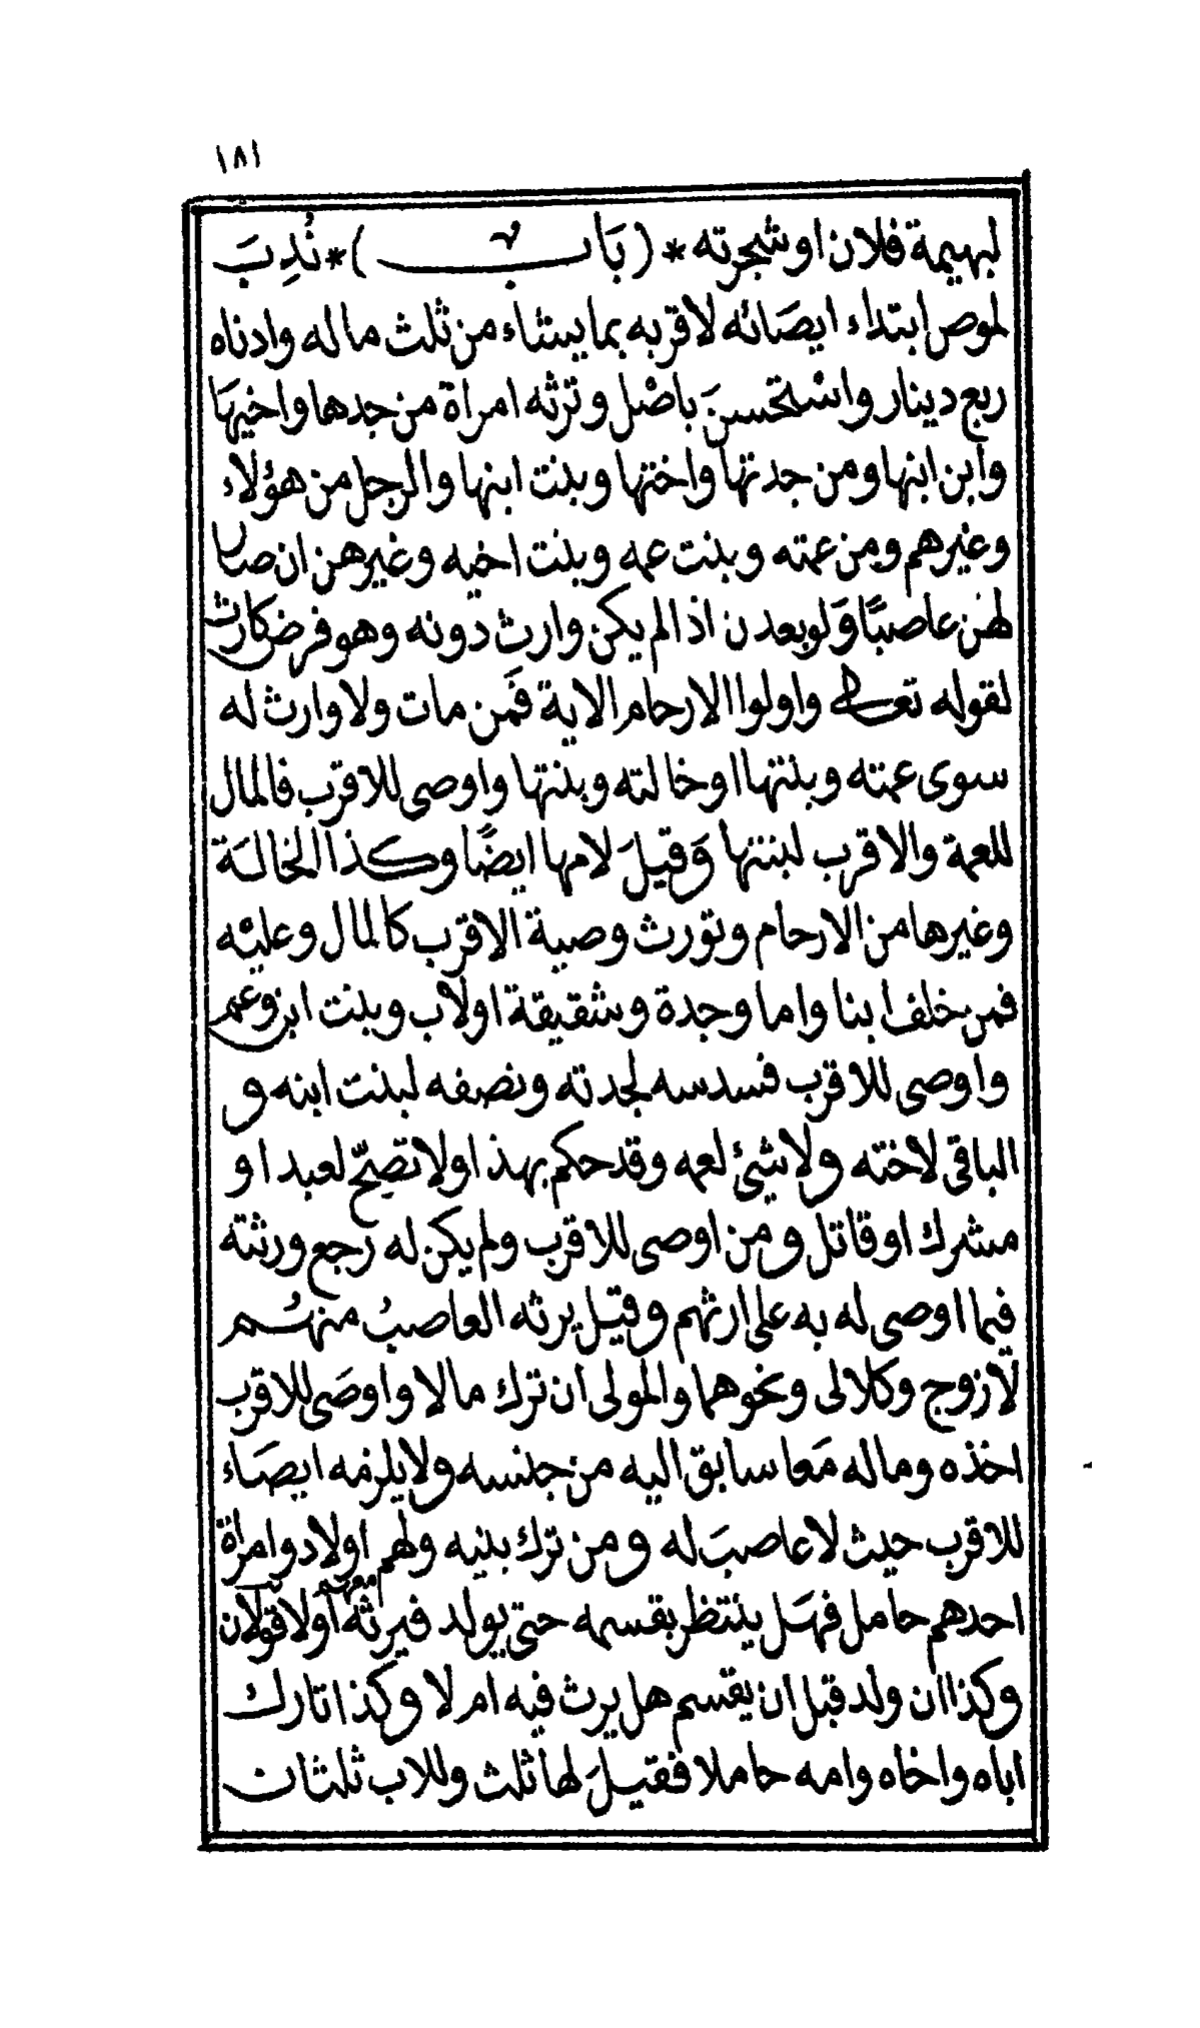 ١٨١
لبهيمة فلان او شجرته * ( بَاب ) * نُدِبَ
لموص ابتداء ايصَائه لاقربه بما يشاء من ثلث ماله وادناه
ربع دينار واسْتحسنَ باصْل وترثه امراة من جدها واخيهَا
وابن ابنها ومن جدتها واختها وبنت ابنها والرجل من هؤلاء
وغيرهم ومن عمته وبنت عمه وبنت اخيه وغيرهن ان صار
لهن عاصبًا وَلو بعدن اذا لم يكن وارث دونه وهو فرض كارث
لقوله تعالى واولوا الارحام الاية فَمن مات ولا وارث له
سوى عمته وبنتها او خالته وبنتها واوصى للاقرب فالمال
للعمة والاقرب لبنتها وَقيلَ لامها ايضًا وكذا الخالة
وغيرها من الارحام وتورث وصية الاقرب كالمال وعليْه
فمن خلف ابنا واما وجدة وشقيقة اولاب وبنت ابن وعم
واوصى للاقرب فسدسه لجدته ونصفه لبنت ابنه و
الباقى لاخته ولا شئ لعمه وقد حكم بهذا ولا تصِحّ لعبد او
مشرك او قاتل ومن اوصى للاقرب ولم يكن له رجع ورثته
فيما اوصى له به على ارثهم وقيل يرثه العاصبُ منهُم
لا زوج وكلالى ونحوهما والمولى ان ترك مالا واوصَى للاقرب
اخذه وماله مَعا سابق اليه من جنسه ولا يلزمه ايصَاء
للاقرب حيث لا عاصبَ له ومن ترك بنيه ولهم اولاد وامراة
احدهم حامل فهَل ينتظر بقسمه حتى يولد فيرثه معهم اولا قولان
وكذا ان ولد قبل ان يقسم هل يرث فيه ام لا وكذا تارك
اباه واخاه وامه حاملا فقيلَ لها ثلث وللاب ثلثان